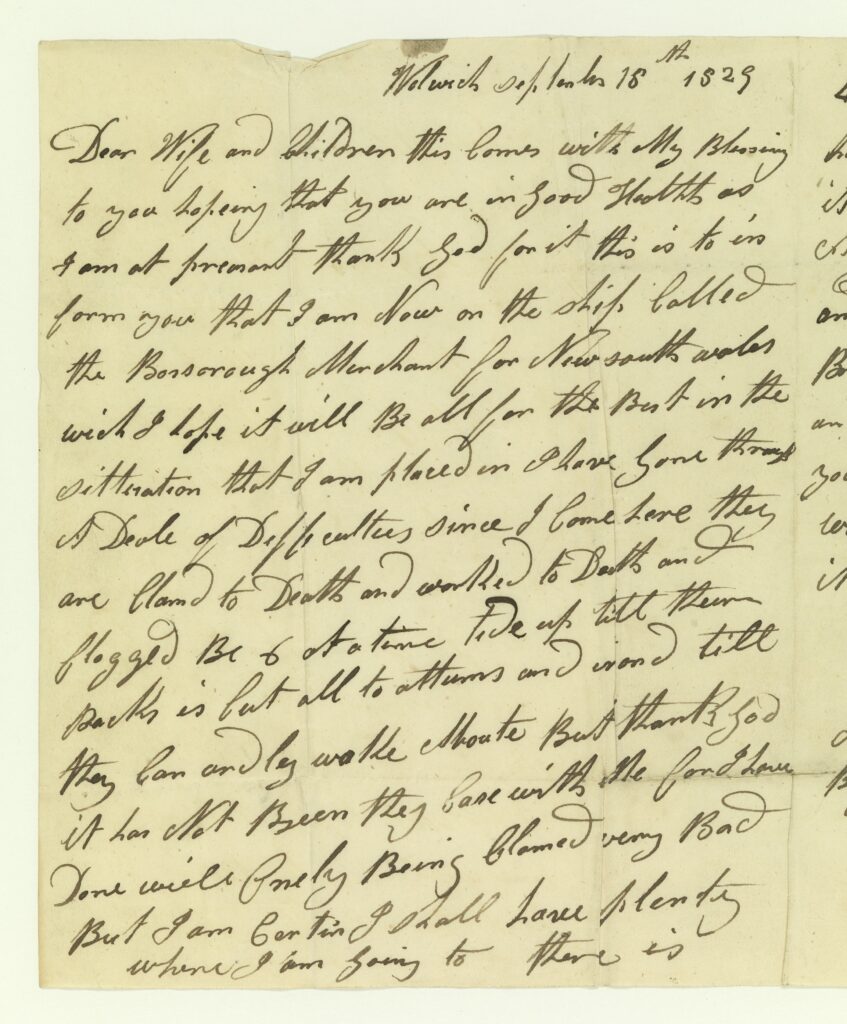 Wolwich September 18th 1829
Dear Wife and Children this Comes with My Blessing
to you hopeing that you are in Good Health as
I am at presant thank God for it this is to in
form you that I am Now on the ship Called
the Bossorough Merchant for New south wales
wich I hope it will Be all for the Best in the
sittiration that I am placed in I have Gone through
A Deale of Diffeculties since I Come here they
are Clamd to Death and worked to Death and
flogged Be 6 at a time tide up till there
Backs is Cut all to attums and irond till
they Can ardley walke Aboute But thank God
it has Not Been they Case with Me for I have
Done well Onely Being Clamed very Bad
But I am Certin I shall have plenty
where I am Going to there is